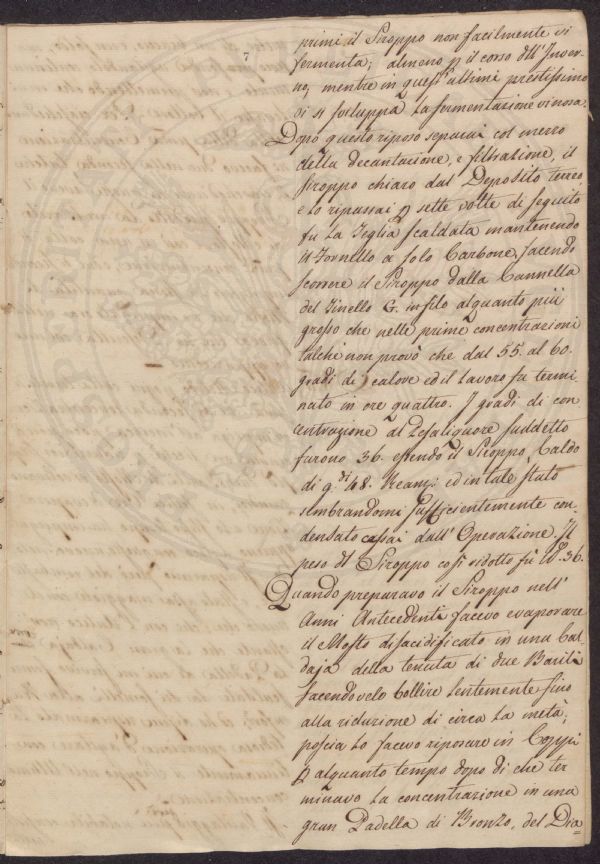 7
primi il Siroppo non facilmente vi
fermenta; almeno p il corso dll' Inver-
no, mentre in quest' ultimi prestissimo
vi si sviluppa la fermentazione vinosa.
Dopo questo riposo separai col mezzo
della decantazione, e filtrazione, il
siroppo chiaro dal Deposito terreo,
e lo ripassai p sette volte di seguito
su la Teglia scaldata mantenendo
il Fornello a solo Carbone, facendo
scorrere il Siroppo dalla Cannella
del Tinello G. in filo alquanto più
grosso che nelle prime concentrazioni
talchè non provò che dal 55. al 60.
gradi di calore ed il lavoro fu termi-
nato in ore quattro. I gradi di con
centrazione al Pesaliquore suddetto
furono 36. essendo il Siroppo Caldo
di g.di 48. Reaum: ed in tale stato
sembrandomi sufficientemente con-
densato cassai dall' Operazione. Il
peso dl Siroppo così ridotto fù lb. 36.
Quando preparavo il Siroppo nell'
Anni Antecedenti facevo evaporare
il Mosto disacidificato in una Cal
daja della tenuta di due Barili
facendovelo bollire lentemente fino
alla riduzione di circa la metà,
poscia lo facevo riposare in Coppi
p alquanto tempo dopo di che ter
minavo la concentrazione in una
gran Padella di Bronzo, del Dia-